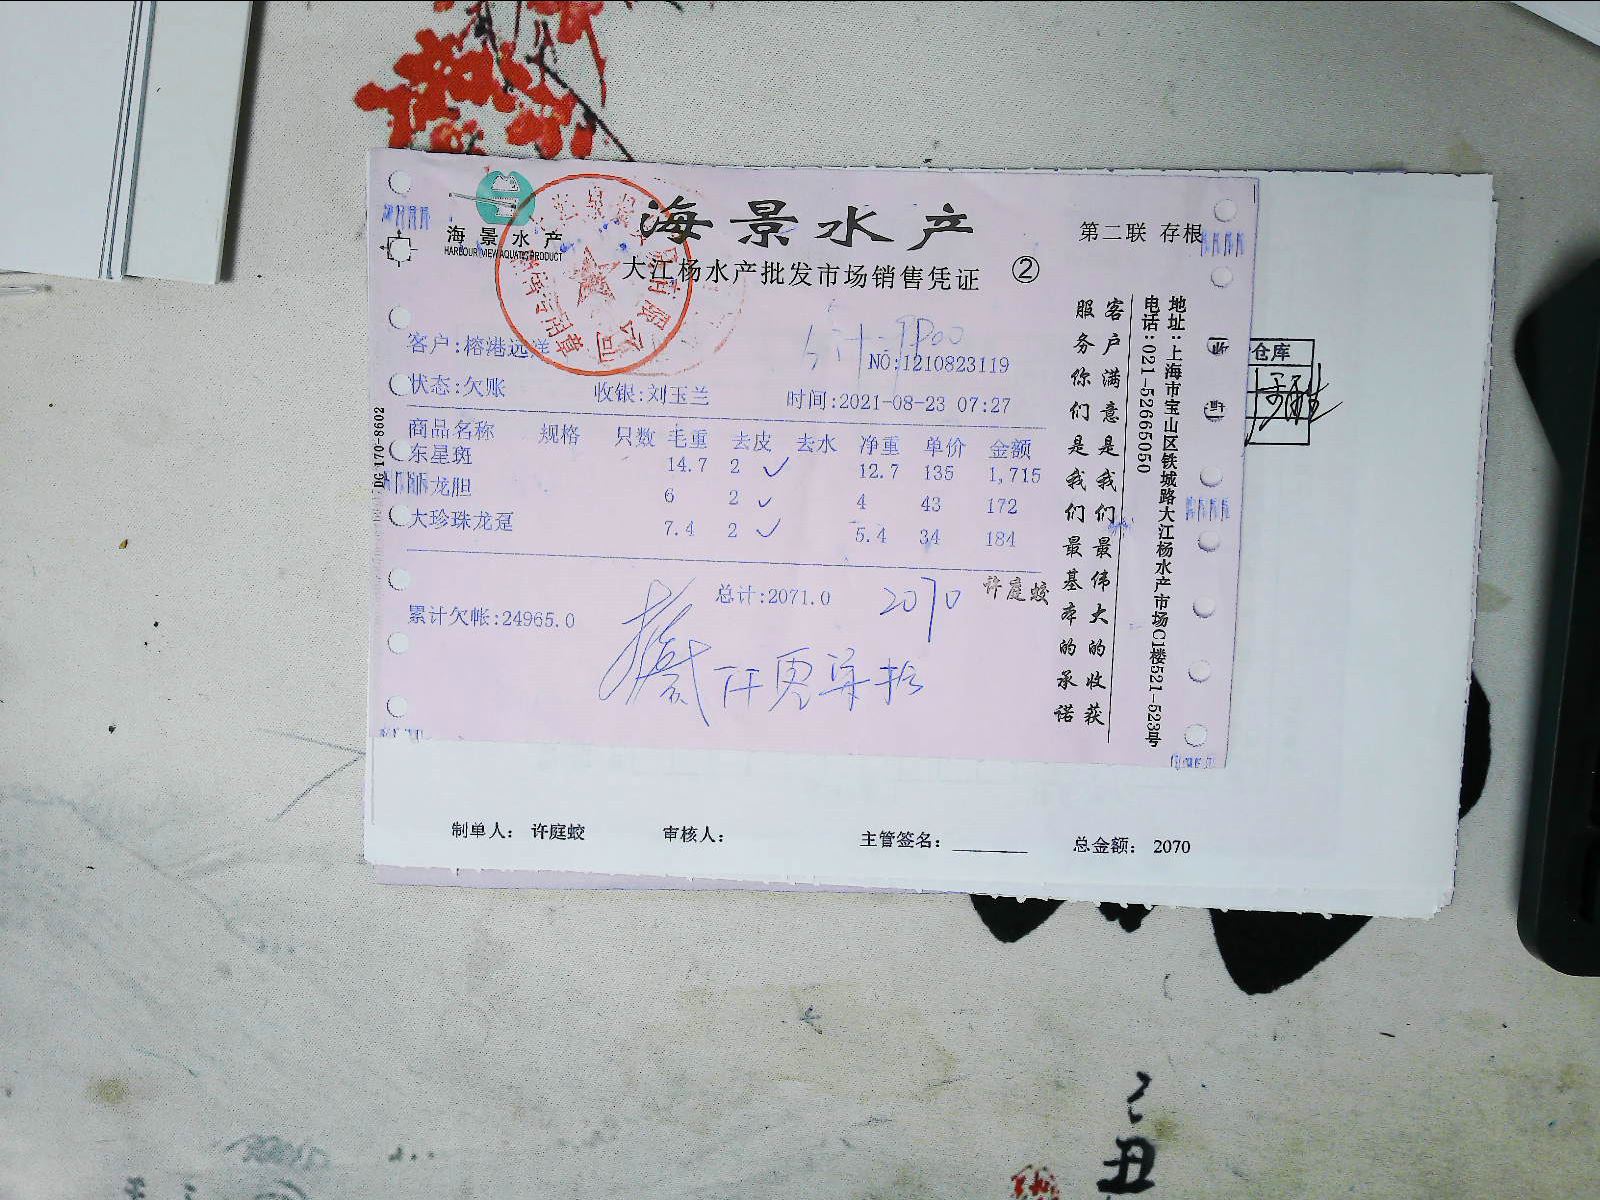 海景水产
HARBOUR VIEW AQUATIC PRODUCT
海景水产
大江杨水产批发市场销售凭证 ②
第二联 存根
客户:榕港远洋
NO:1210823119
状态:欠账 收银:刘玉兰 时间:2021-08-23 07:27
商品名称 规格 只数 毛重 去皮 去水 净重 单价 金额
东星斑 14.7 2 ✓ 12.7 135 1,715
龙胆 6 2 ✓ 4 43 172
大珍珠龙趸 7.4 2 ✓ 5.4 34 184
总计:2071.0 2070 许庭蛟
累计欠帐:24965.0
客户满意是我们最伟大的收获
服务你们是我们最基本的承诺
地址:上海市宝山区铁城路大江杨水产市场C1楼521-523号
电话:021-52665050
DG 170-8602
仓库
制单人: 许庭蛟 审核人: 主管签名: 总金额: 2070
丑